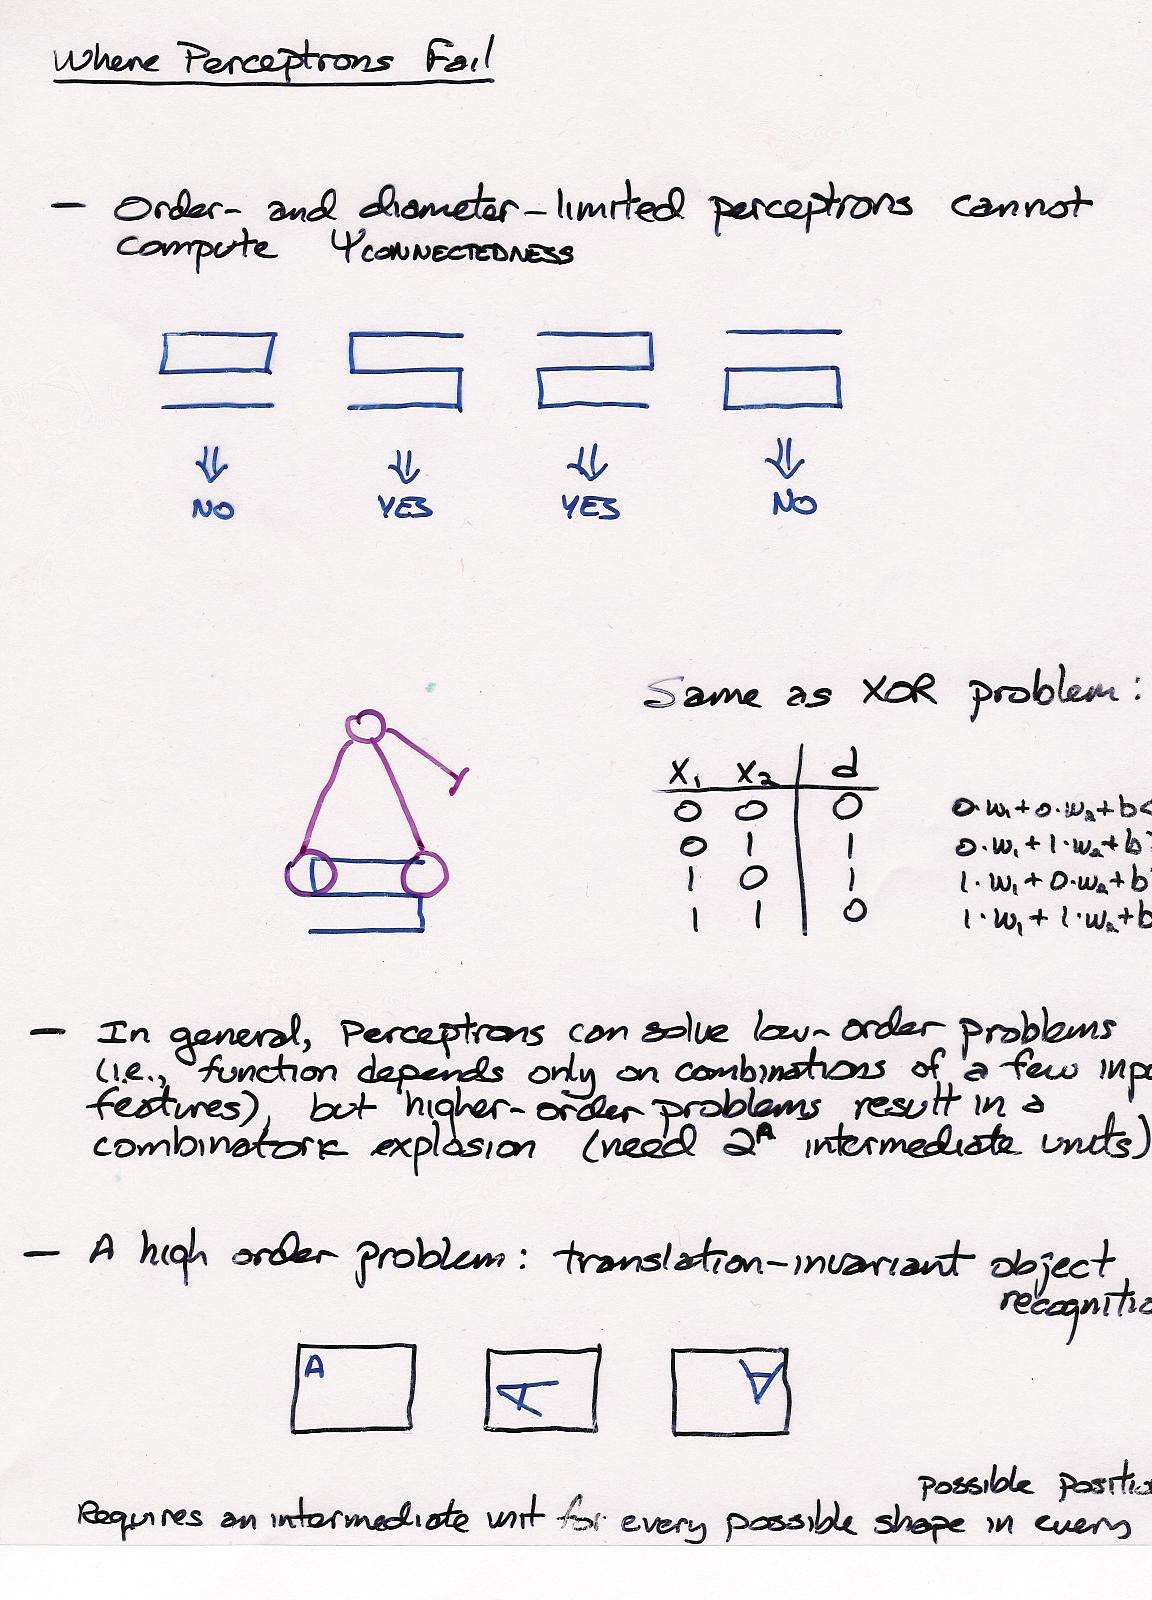 Where Perceptrons Fail
— Order- and diameter-limited perceptrons cannot
compute ΨCONNECTEDNESS
NO YES YES NO
Same as XOR problem:
X₁ X₂ d
0 0 0 0·w₁+0·w₂+b<
0 1 1 0·w₁+1·w₂+b>
1 0 1 1·w₁+0·w₂+b>
1 1 0 1·w₁+1·w₂+b
— In general, Perceptrons can solve low-order problems
(i.e., function depends only on combinations of a few inp
features), but higher-order problems result in a
combinatoric explosion (need 2ᴬ intermediate units)
— A high order problem: translation-invariant object
recognitio
A A A
possible positio
Requires an intermediate unit for every possible shape in every